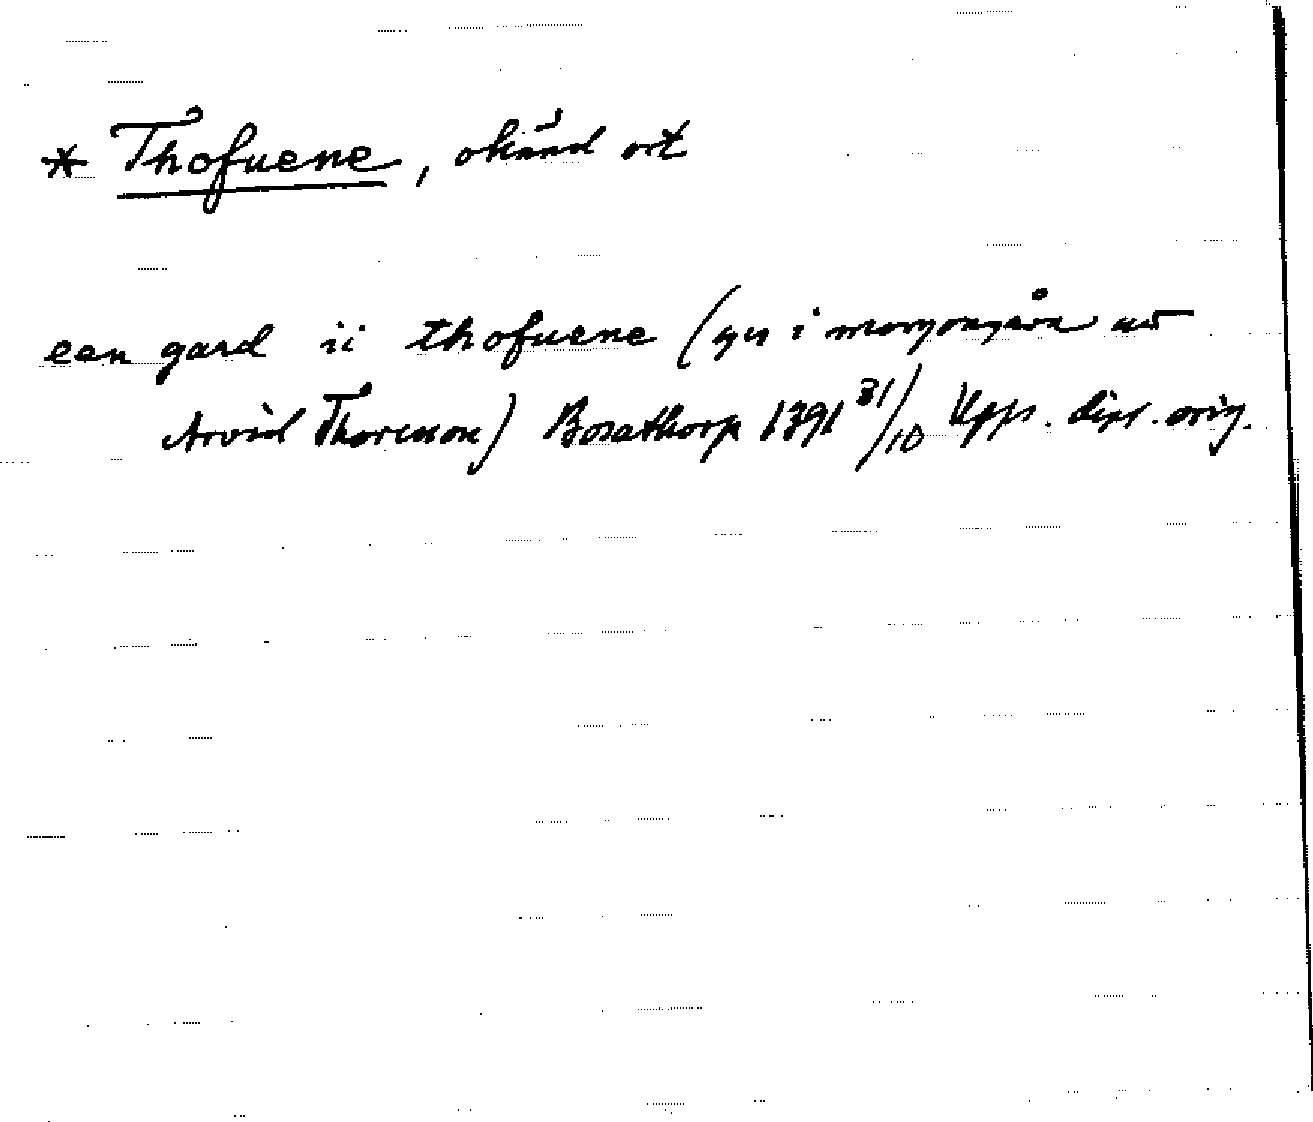 * Thofuene, okänd ort
een gard ii thofuene (ges i morgongåva av
Arvid Thoresson) Bosathorp 1391 31/10 Upps. dipl. orig.